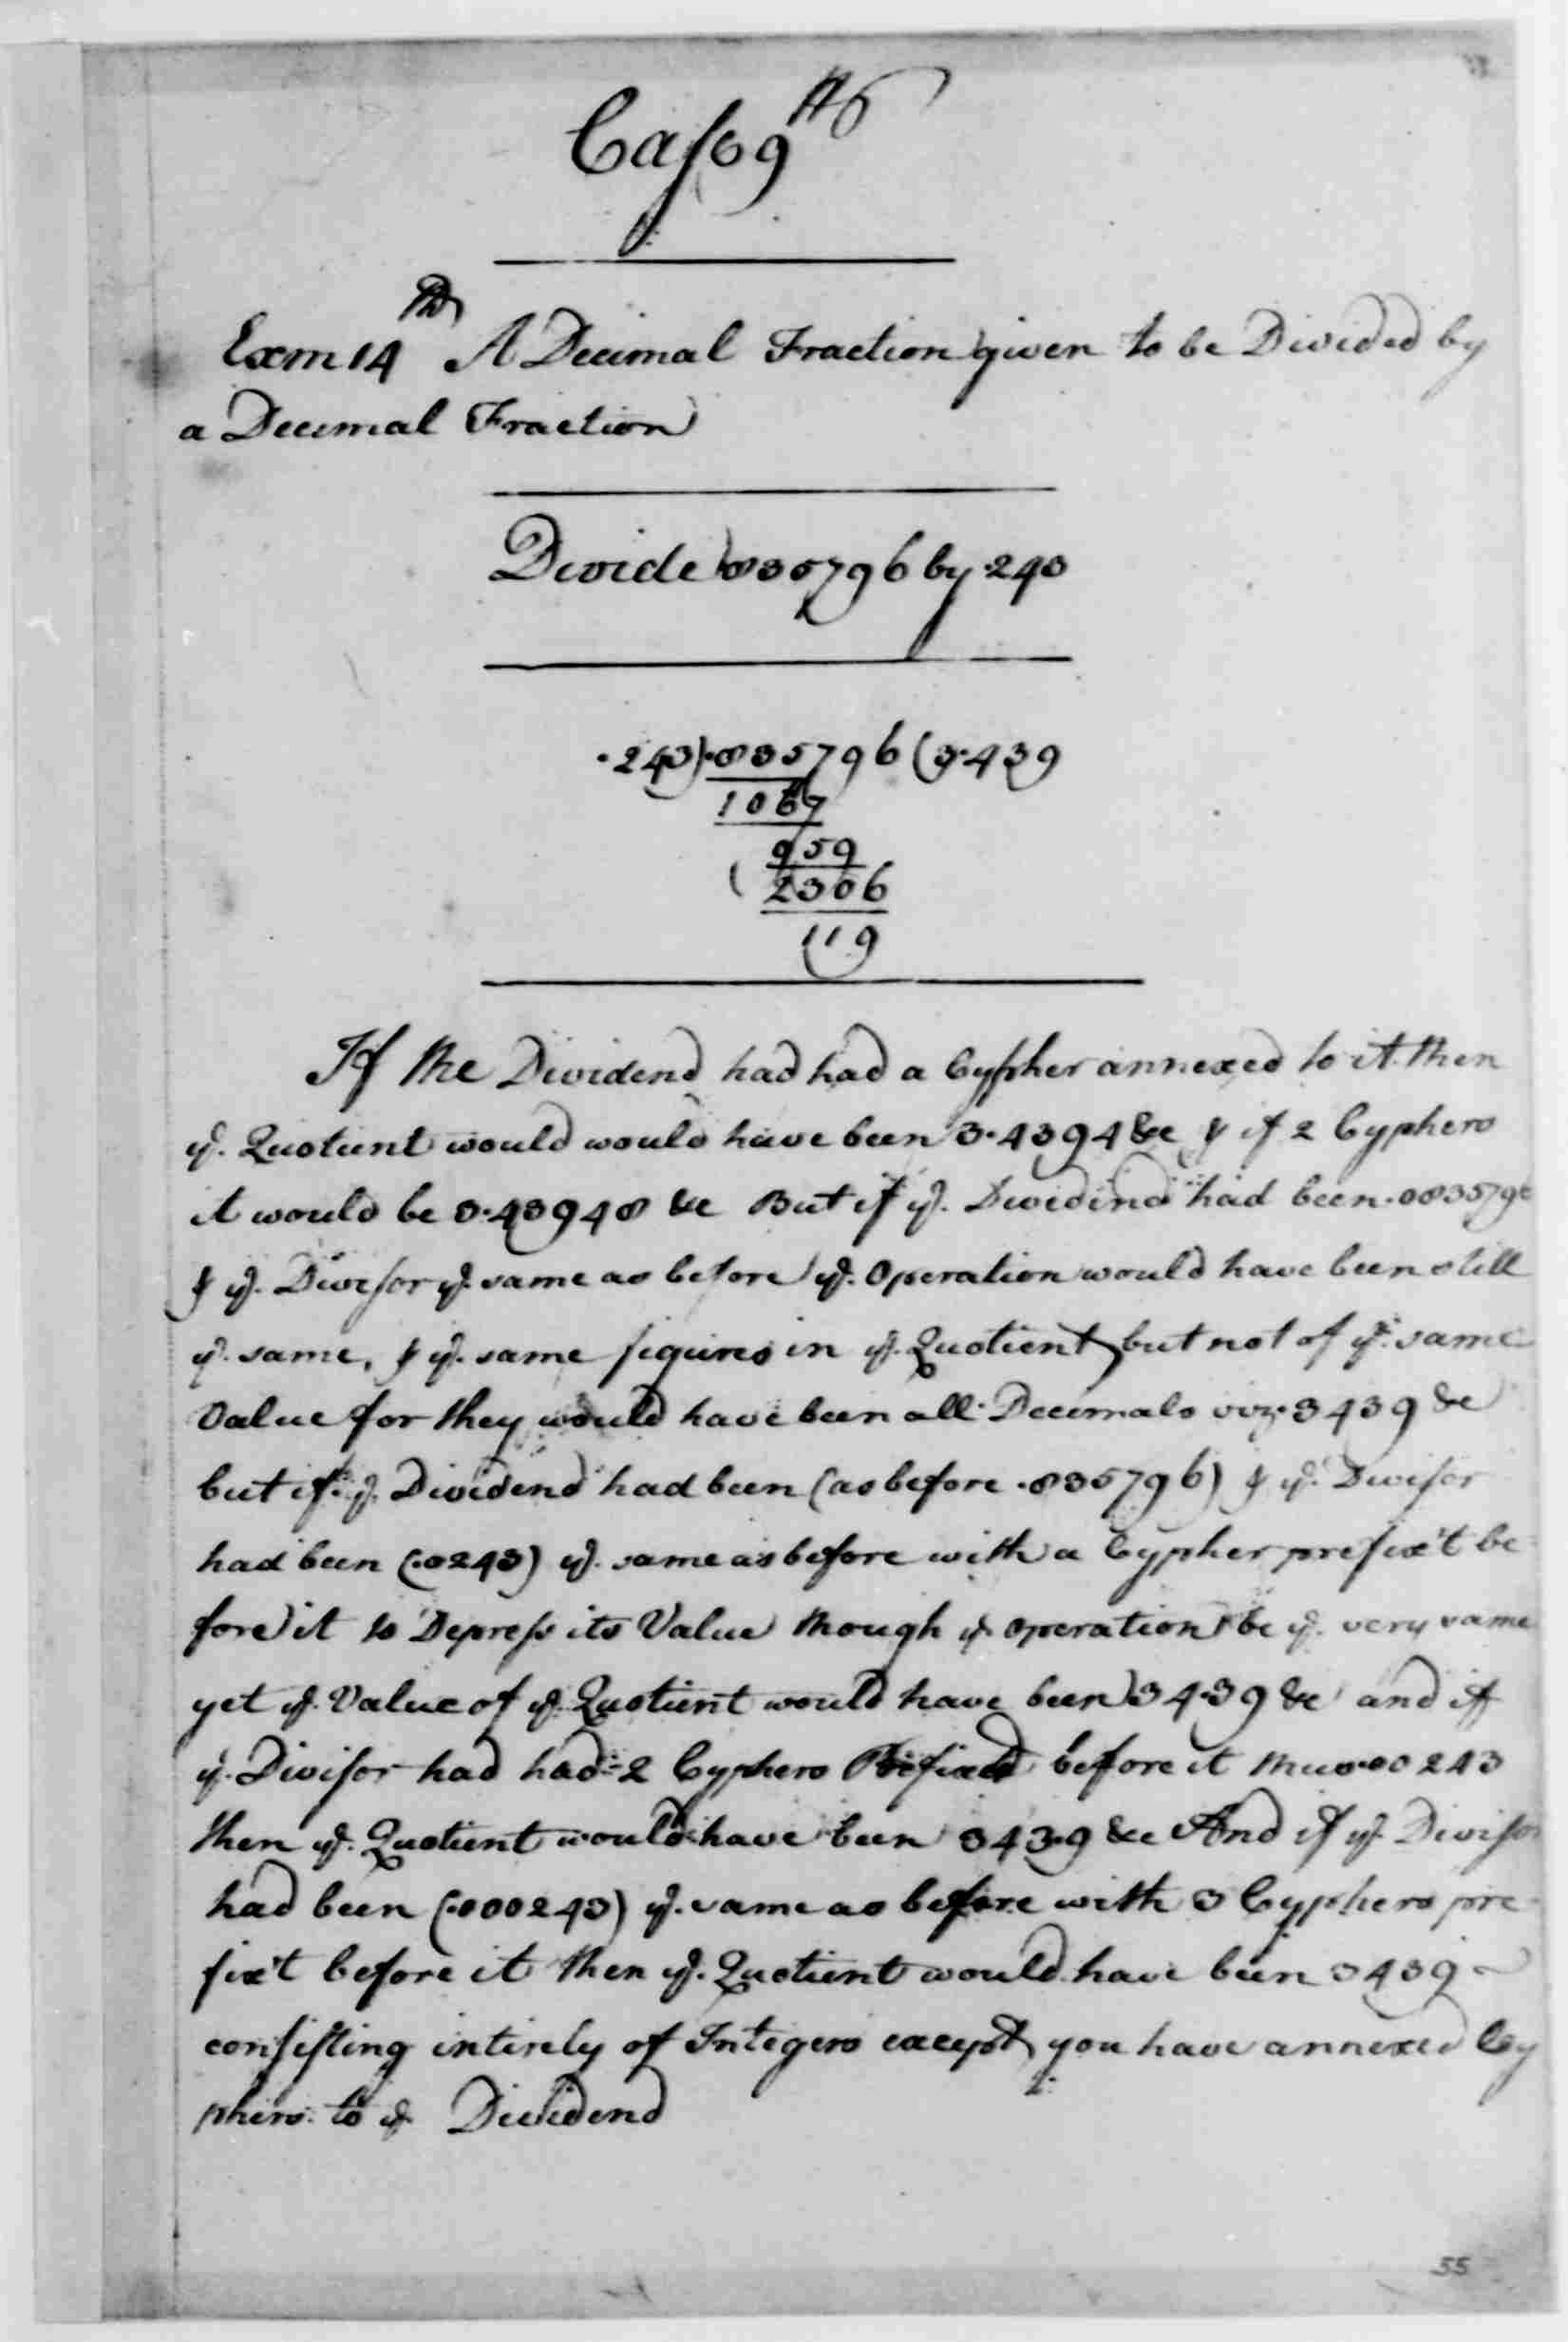 Caſe 9th
Exm 14th A Decimal Fraction given to be Divided by
a Decimal Fraction
Divide .835796 by .243
.243).835796(3.439
1067
959
2306
119
If the Dividend had had a Cypher annexed to it then
ye. Quotient would would have been 3.4394 &c & if 2 Cyphers
it would be 3.43948 &c But if ye. Dividend had been .0835796
& ye. Diviſor ye. same as before ye. Operation would have been still
ye. same, & ye. same figures in ye. Quotient, but not of ye. same
Value for they would have been all Decimals viz .3439 &c
but if ye. Dividend had been (as before .835796) & ye. Diviſor
had been (.0243) ye. same as before with a Cypher prefix't be
fore it to Depreſs its Value though ye Operation be ye. very same
yet ye. Value of ye. Quotient would have been 34.39 &c and if
ye. Diviſor had had 2 Cyphers Prefixed before it thus .00243
then ye. Quotient would have been 343.9 &c And if ye. Diviſor
had been (.000243) ye. same as before with 3 Cyphers pre
fix't before it then ye. Quotient would have been 3439
conſiſting intirely of Integers except you have annexed Cy
phers to ye Dividend
55